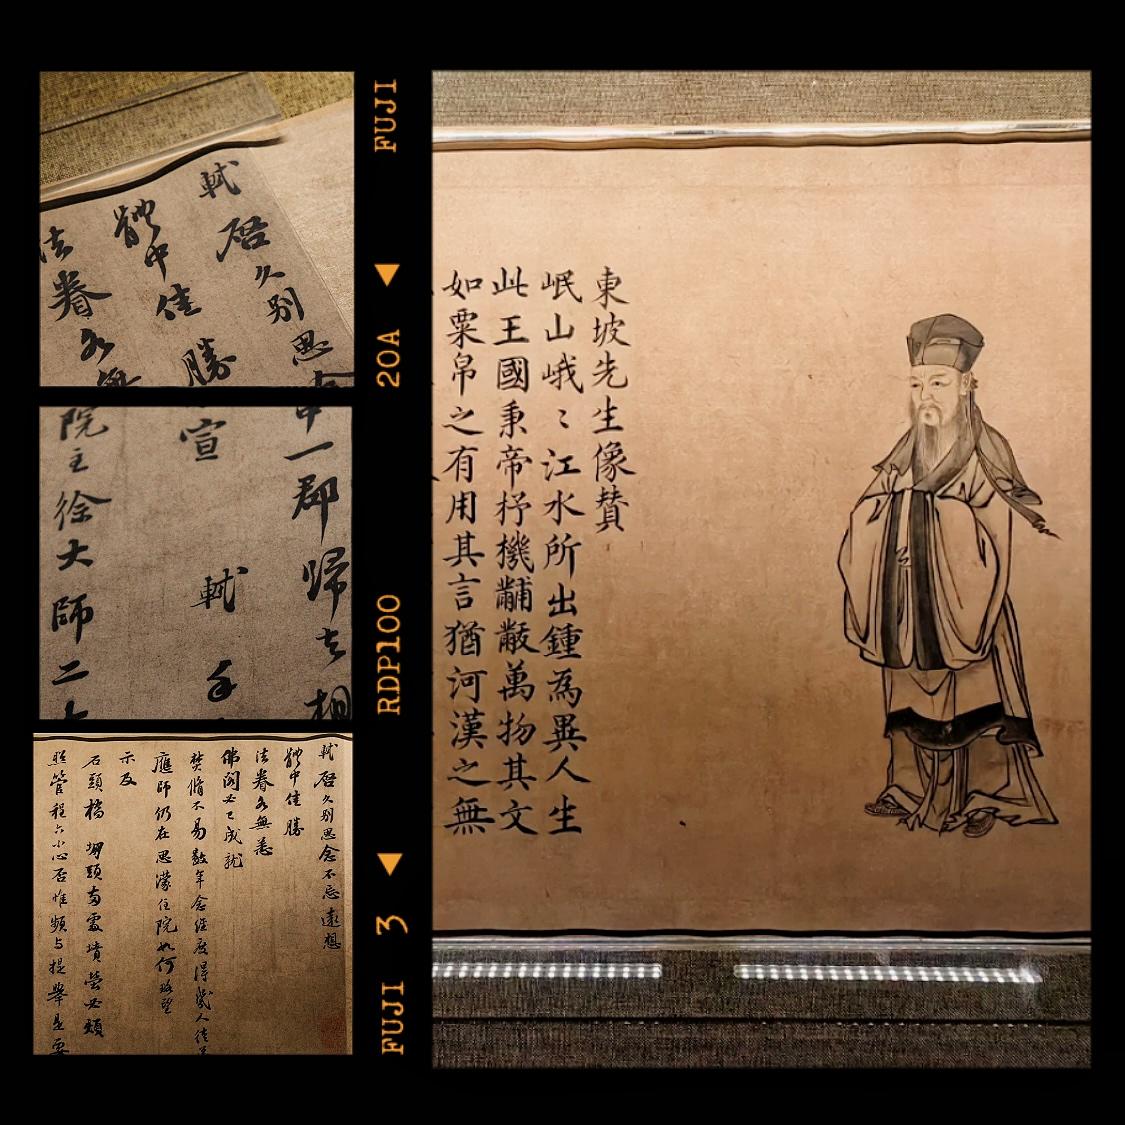 軾
啓久別思
體中佳勝
法眷各無
FUJI
20A
中一郡歸去相
宣
軾手
院主徐大師二
RDP100
軾啓久別思念不忘遠想
體中佳勝
法眷各無恙
佛閣必已成就
焚脩不易數年念經度得幾人徒弟
應師仍在思濛住院如何略望
示及
石頭橋堋頭兩處墳塋必煩
照管程六小心否惟頻与提舉是要
3
FUJI
東坡先生像贊
岷山峨〻江水所出鍾為異人生
此王國秉帝杼機黼黻萬物其文
如粟帛之有用其言猶河漢之無